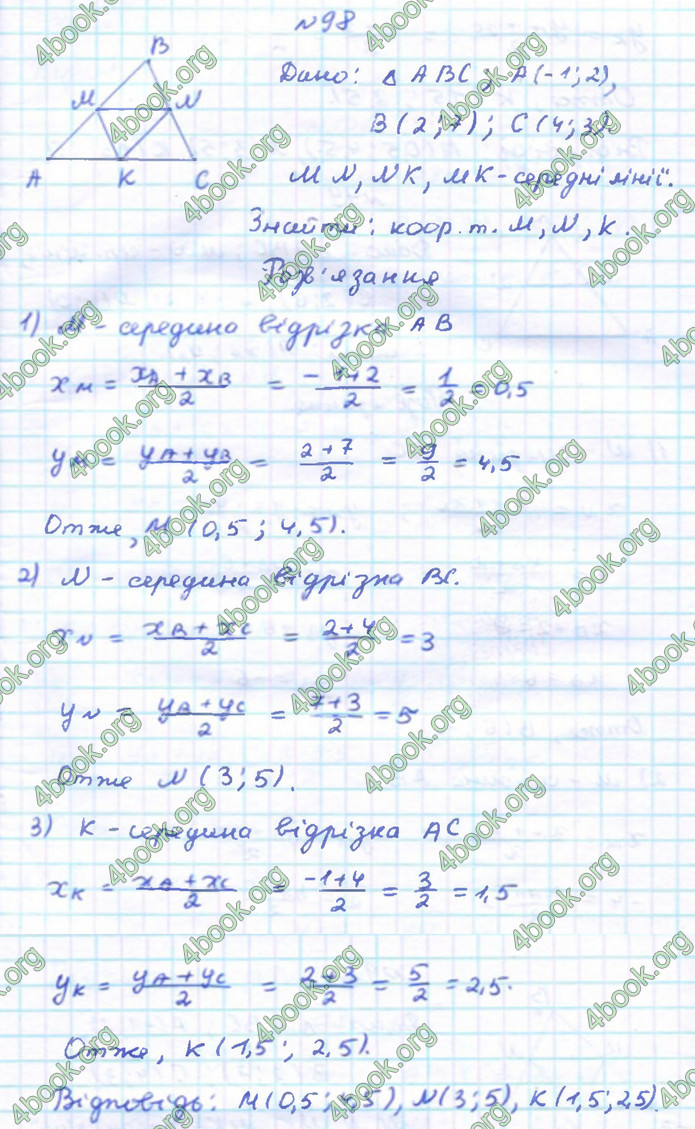 №98
B
M N
A K C
Дано: △ ABC; A(-1; 2),
B(2; 7); C(4; 3).
MN, NK, MK - середні лінії.
Знайти: коор. т. M, N, K.
Розв'язання
1) M - середина відрізка AB
xM = (xA + xB)/2 = (-1+2)/2 = 1/2 = 0,5
yM = (yA + yB)/2 = (2+7)/2 = 9/2 = 4,5
Отже, M (0,5; 4,5).
2) N - середина відрізка BC.
xN = (xB + xC)/2 = (2+4)/2 = 3
yN = (yB + yC)/2 = (7+3)/2 = 5
Отже N (3; 5).
3) K - середина відрізка AC
xK = (xA + xC)/2 = (-1+4)/2 = 3/2 = 1,5
yK = (yA + yC)/2 = (2+3)/2 = 5/2 = 2,5.
Отже, K (1,5; 2,5).
Відповідь: M(0,5; 4,5), N(3; 5), K(1,5; 2,5).
4book.org